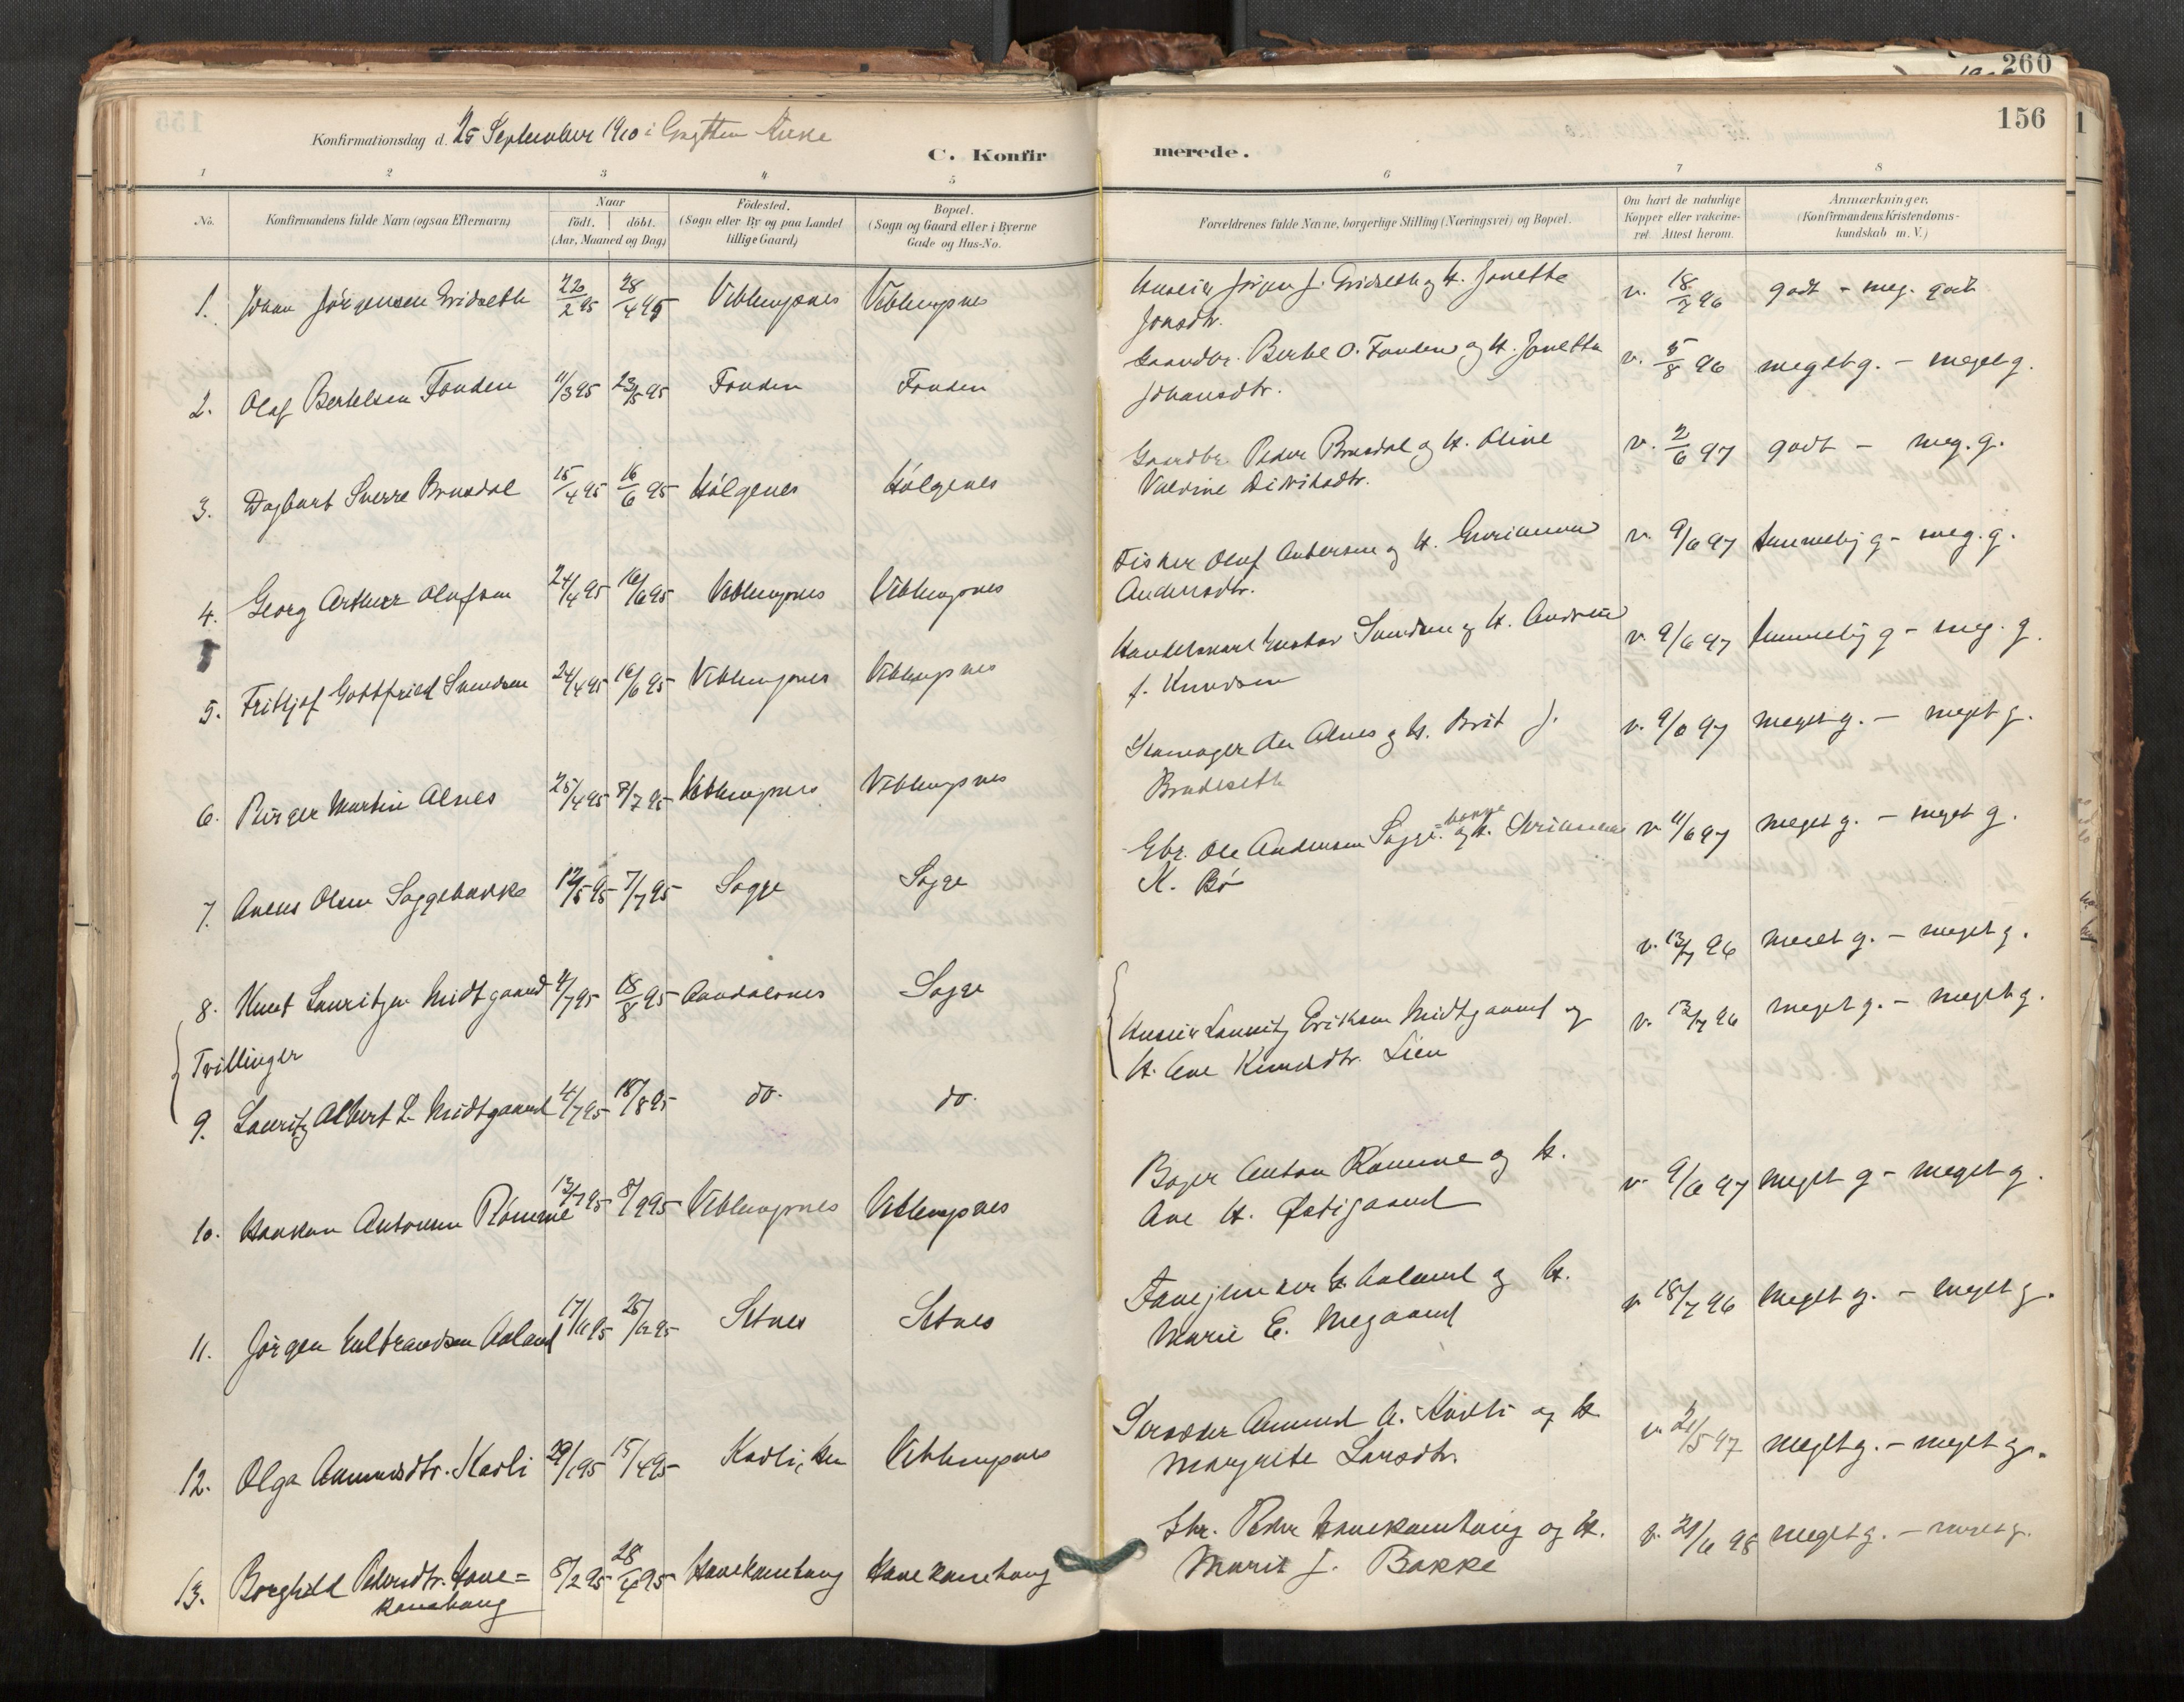 260
156
Konfirmationsdag d. 25 September 1910 i Grytten Kirke
C. Konfirmerede.
1 2 3 4 5 6 7 8
No. Konfirmandens fulde Navn (ogsaa Efternavn) Naar födt. döbt. (Aar, Maaned og Dag) Födested. (Sogn eller By og paa Landet tillige Gaard) Bopæl. (Sogn og Gaard eller i Byerne Gade og Hus-No. Forældrenes fulde Navne, borgerlige Stilling (Næringsvei) og Bopæl. Om havt de naturlige Kopper eller vakcineret. Attest herom. Anmærkninger. (Konfirmandens Kristendomskundskab m. V.)
1. Johan Jörgensen 22/2 95 28/4 95 Veblungsnes Veblungsnes Jörgen J. og H. Jonetta
Jonsdtr. v. 18/7 96 godt - meg. godt
2. Olaf Bertelsen Fonden 11/3 95 23/5 95 Fonden Fonden Gaardbr. Bertel O. Fonden og H. Jonetta
Johansdtr. v. 5/8 96 meget g. - meget g.
3. Dagbart Sverre Brusdal 15/4 95 16/6 95 Hólgenes Hólgenes Gaardbr. Peder Brusdal og H. Oline
Valdine Didriksdtr. v. 2/6 97 godt - meg. g.
4. Georg Arthur Olufsen 24/4 95 16/6 95 Veblungsnes Veblungsnes Fisker Oluf Andersen og H.
Andersdtr. v. 9/6 97 temmelig g - meg. g.
5. Fritjof Gottfried Svendsen 24/4 95 16/6 95 Veblungsnes Veblungsnes Gustav Svendsen og H.
f. Knudsen v. 9/6 97 temmelig g - meg. g.
6. Birger Martin Alnes 25/4 95 8/7 95 Veblungsnes Veblungsnes Skomager Alnes og H. Brit J.
v. 9/6 97 meget g. - meget g.
7. Olsen Soggebakke 12/5 95 7/7 95 Sogge Sogge Gbr. Ole Andersen Sogge=bakke og H.
K. Bö v. 11/6 97 meget g. - meget g.
8. Knut Lauritzen Midtgaard 4/7 95 18/8 95 Aandalsnes Sogge v. 13/7 96 meget g. - meget g.
Tvillinger
Lauritz Eriksen Midtgaard og
H. Ane Knudsdtr. Lien v. 13/7 96 meget g. - meget g.
9. Lauritz Albert L. Midtgaard 4/7 95 18/8 95 do. do.
10. Haakon Antonsen 13/7 95 8/9 95 Veblungsnes Veblungsnes Anton og H.
Ane H. v. 9/6 97 meget g - meget g.
11. Jörgen Aaland Setnes Setnes Fanejunker H. Aaland og H.
Marie E. v. 18/7 96 meget g. - meget g.
12. Olga Aamundsdtr. Kavli 29/1 95 15/4 95 Kavli, Veblungsnes Skrædder Aamund A. Kavli og H.
Margrete Larsdtr. v. 21/5 97 meget g. - meget g.
13. Borghild Pedersdtr. Hane=
kamhaug 8/2 95 28/4 95 Hanekamhaug Hanekamhaug Gbr. Peder Hanekamhaug og H.
Marit J. Bakke v. 21/6 98 meget g. - meget g.